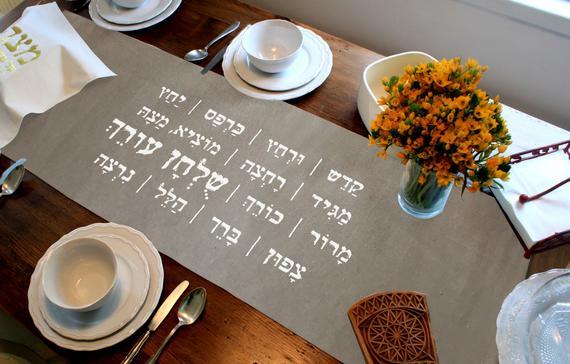 מצה
קַדֵּשׁ | וּרְחַץ | כַּרְפַּס | יַחַץ
מַגִּיד | רָחְצָה | מוֹצִיא, מַצָּה
מָרוֹר | כּוֹרֵךְ | שֻׁלְחָן עוֹרֵךְ
צָפוּן | בָּרֵךְ | הַלֵּל | נִרְצָה